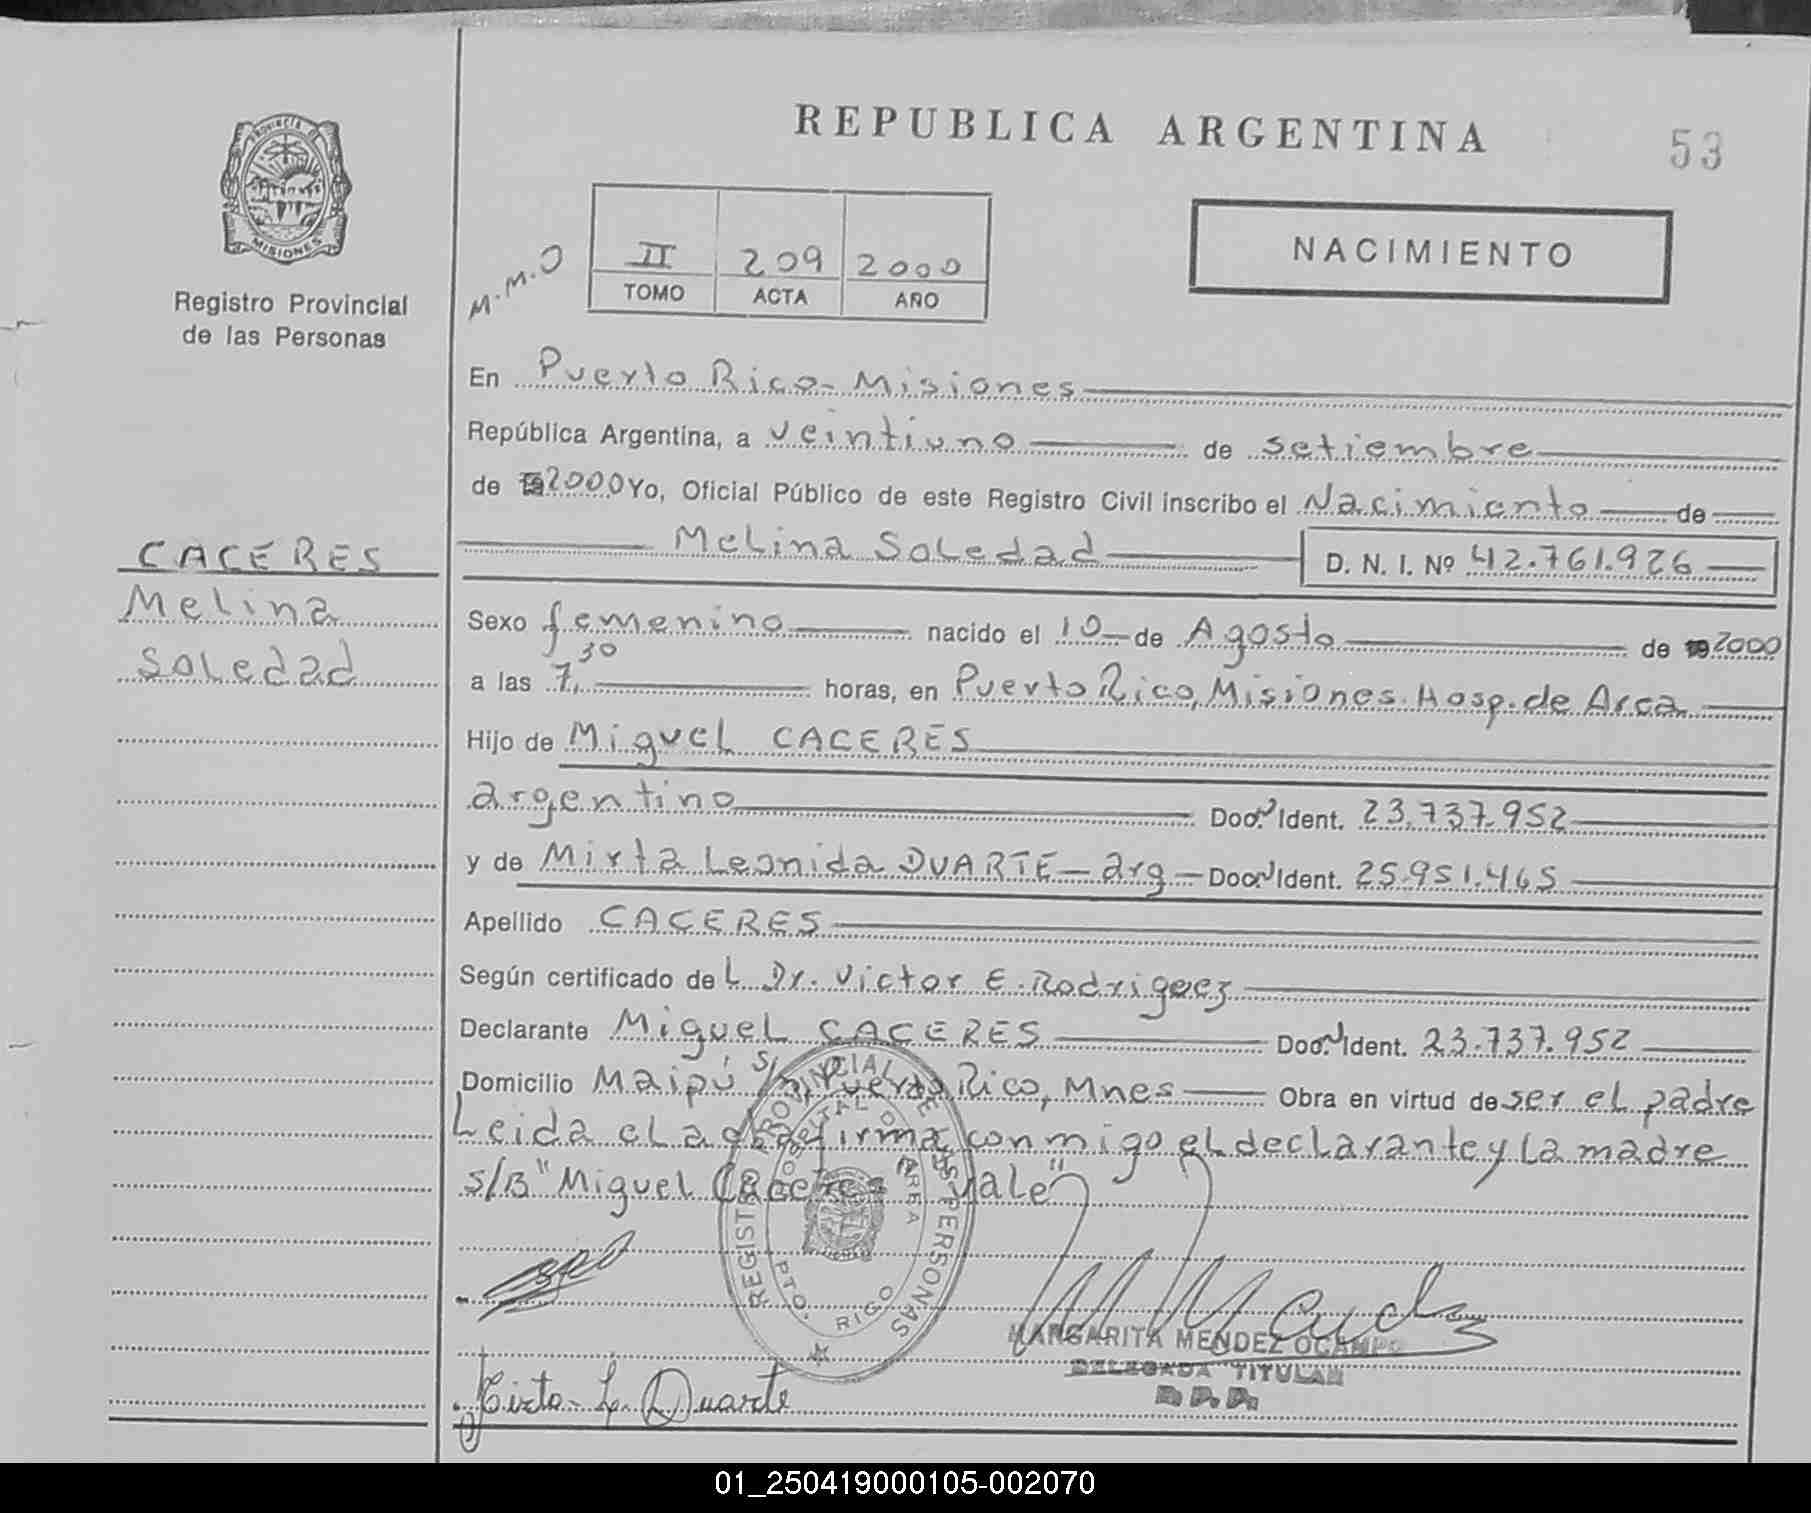 REPUBLICA ARGENTINA
53
PROVINCIA DE
MISIONES
Registro Provincial
de las Personas
M.M.O
II 209 2000
TOMO ACTA AÑO
NACIMIENTO
En Puerto Rico - Misiones
República Argentina, a veintiuno de setiembre
de 2000 Yo, Oficial Público de este Registro Civil inscribo el Nacimiento de
Melina Soledad D. N. I. Nº 42.761.926
CACERES
Melina
Soledad
Sexo femenino nacido el 10 de Agosto de 2000
a las 7,30 horas, en Puerto Rico, Misiones. Hosp. de Area
Hijo de Miguel CACERES
argentino Doc. Ident. 23.737.952
y de Mirta Leonida DUARTE - arg - Doc. Ident. 25.951.465
Apellido CACERES
Según certificado del Dr. Victor E. Rodriguez
Declarante Miguel CACERES Doc. Ident. 23.737.952
Domicilio Maipú s/n, Puerto Rico, Mnes Obra en virtud de ser el padre
Leida el acta firma conmigo el declarante y la madre
S/B "Miguel Caceres Vale"
REGISTRO PROVINCIAL DE LAS PERSONAS
HOSPITAL DE AREA
PTO. RICO
MARGARITA MENDEZ OCAMPO
DELEGADA TITULAR
Mirta L. Duarte
01_250419000105-002070